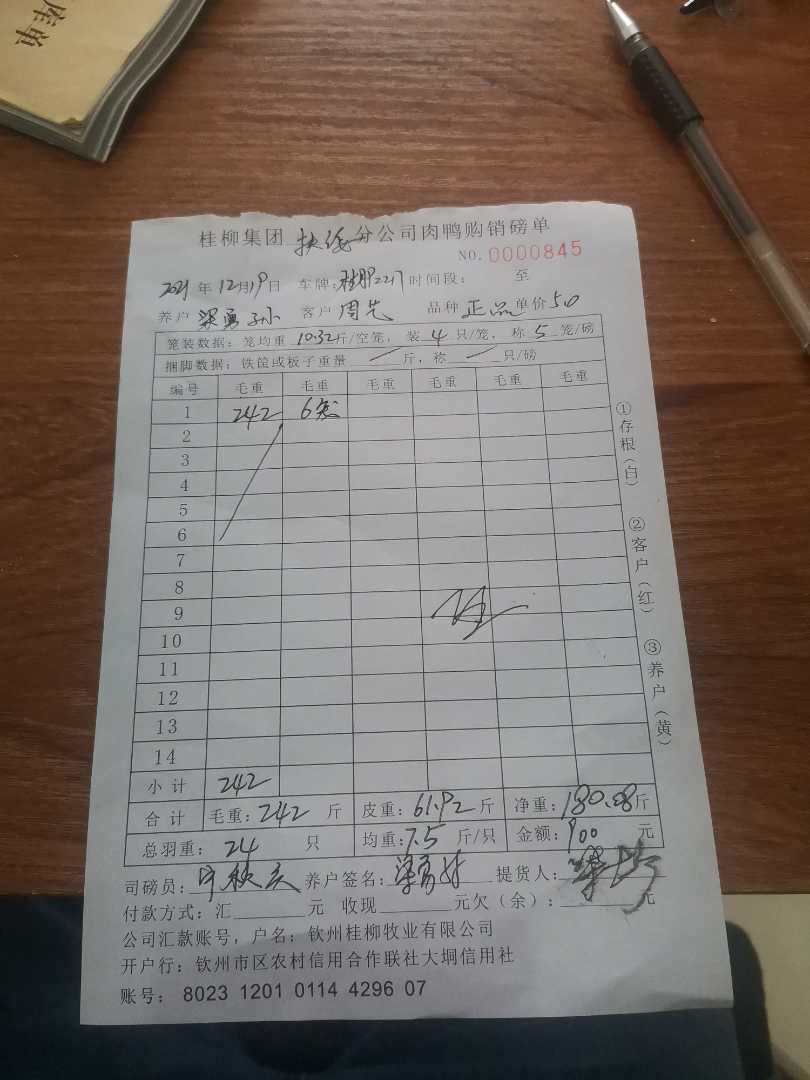 库单
桂柳集团 扶绥 分公司肉鸭购销磅单
NO. 0000845
2021年12月19日 车牌: 时间段: 至
养户 梁勇 客户 周先 品种 正品 单价 5.0
笼装数据: 笼均重 10.32 斤/空笼, 装 4 只/笼, 称 5 笼/磅
捆脚数据: 铁筐或板子重量 斤, 称 只/磅
编号 毛重 毛重 毛重 毛重 毛重 毛重
1 242 6笼
2
3
4
5
6
7
8
9
10
11
12
13
14
小计 242
合计 毛重: 242 斤 皮重: 61.92 斤 净重: 180.08 斤
总羽重: 24 只 均重: 7.5 斤/只 金额: 900 元
司磅员: 养户签名: 梁勇 提货人:
付款方式: 汇 元 收现 元欠(余): 元
公司汇款账号, 户名: 钦州桂柳牧业有限公司
开户行: 钦州市区农村信用合作联社大垌信用社
账号: 8023 1201 0114 4296 07
①存根(白) ②客户(红) ③养户(黄)